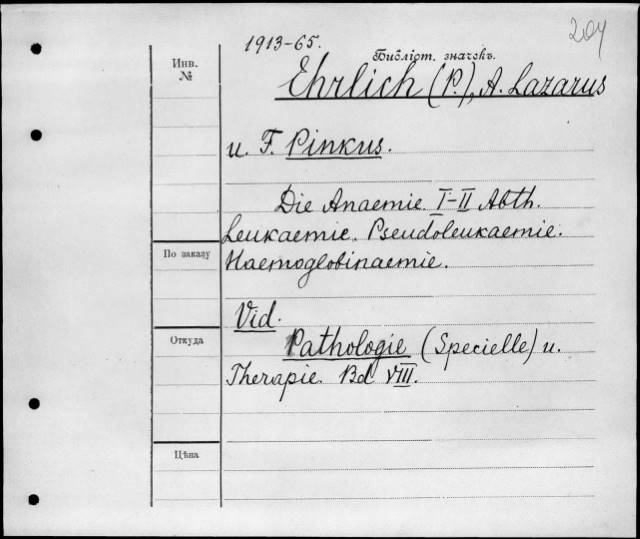 204
1913-65.
Библіот. значекъ.
Инв.
№
Ehrlich (P.), A. Lazarus
u. F. Pinkus.
Die Anaemie I-II Abth.
Leukaemie. Pseudoleukaemie.
По заказу
Haemoglobinaemie.
Vid.
Откуда
Pathologie (Specielle) u.
Therapie. Bd VIII.
Цѣна